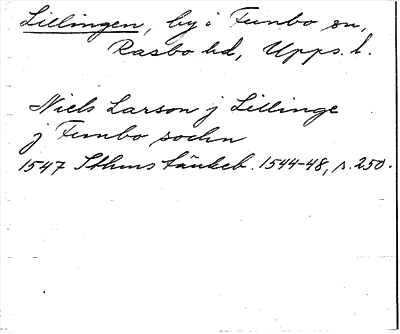 Lillingen, by i Funbo sn,
Rasbo hd, Upps. l.
Niels Larson j Lillinge
j Funbo sochn
1547 Sthms tänkeb. 1544-48, s. 250.